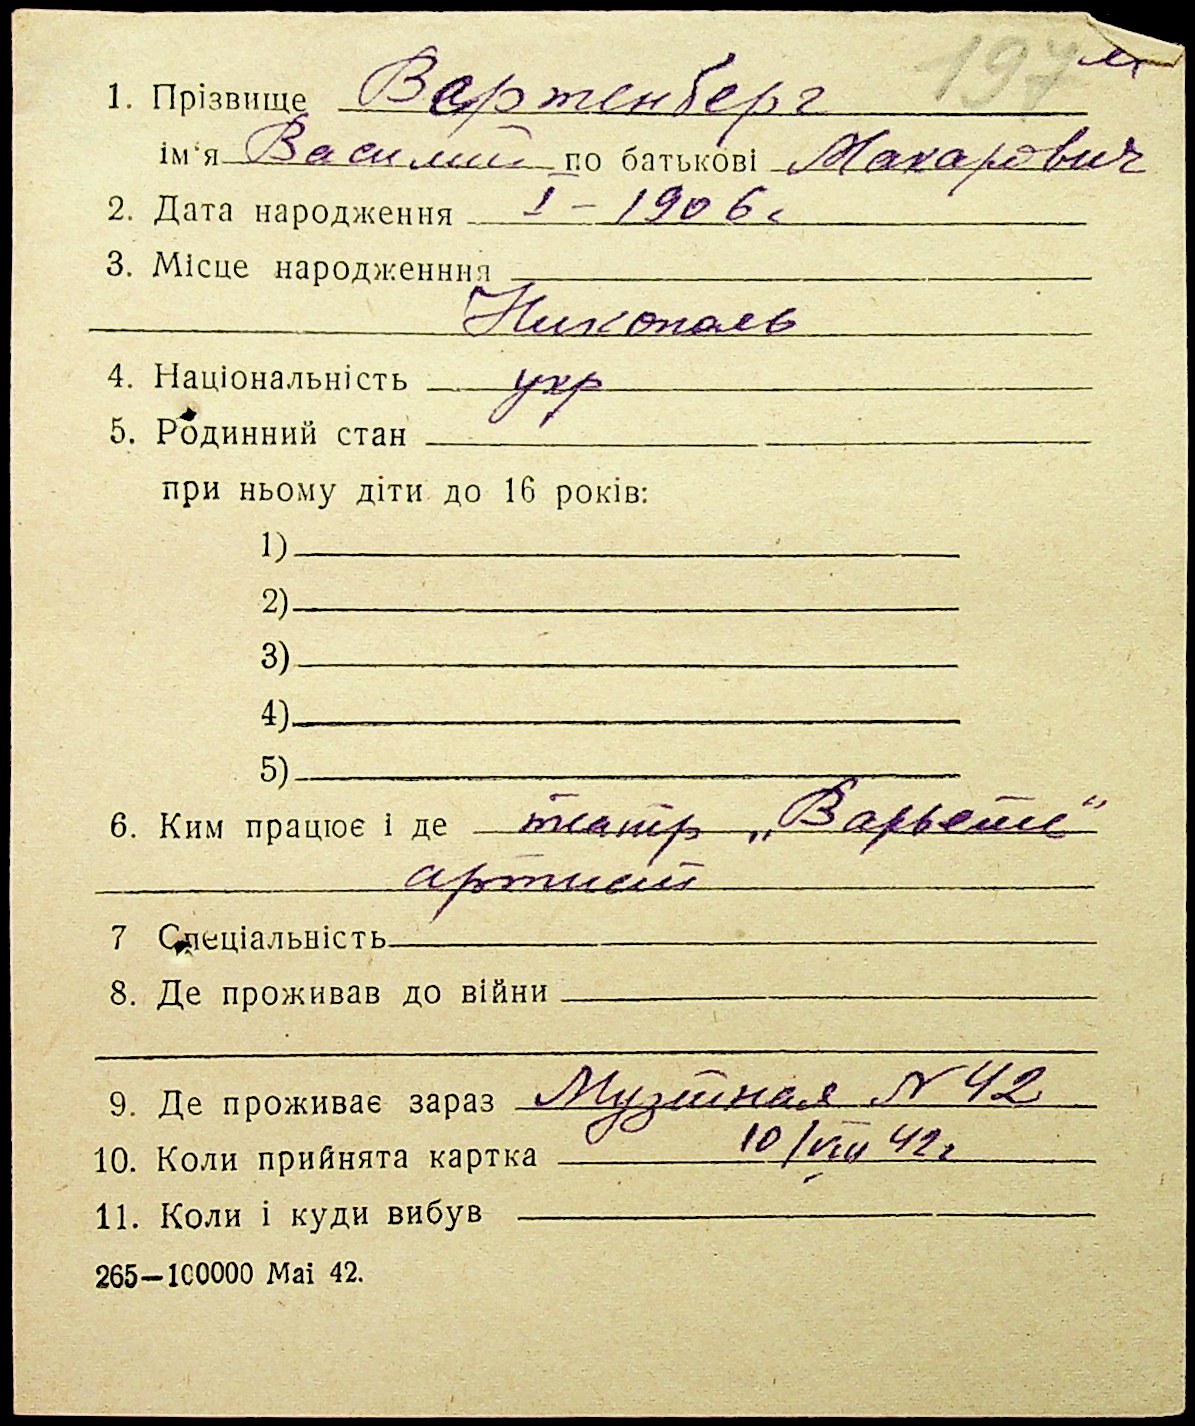 197
1. Прізвище Вартенберг
ім'я Василий по батькові Макарович
2. Дата народження I – 1906 г
3. Місце народженння
Никополь
4. Національність укр
5. Родинний стан
при ньому діти до 16 років:
1)
2)
3)
4)
5)
6. Ким працює і де театр „Варьете“
артист
7 Спеціальність
8. Де проживав до війни
9. Де проживає зараз N 42
10. Коли прийнята картка 10/VIII 42г
11. Коли і куди вибув
265—100000 Mai 42.